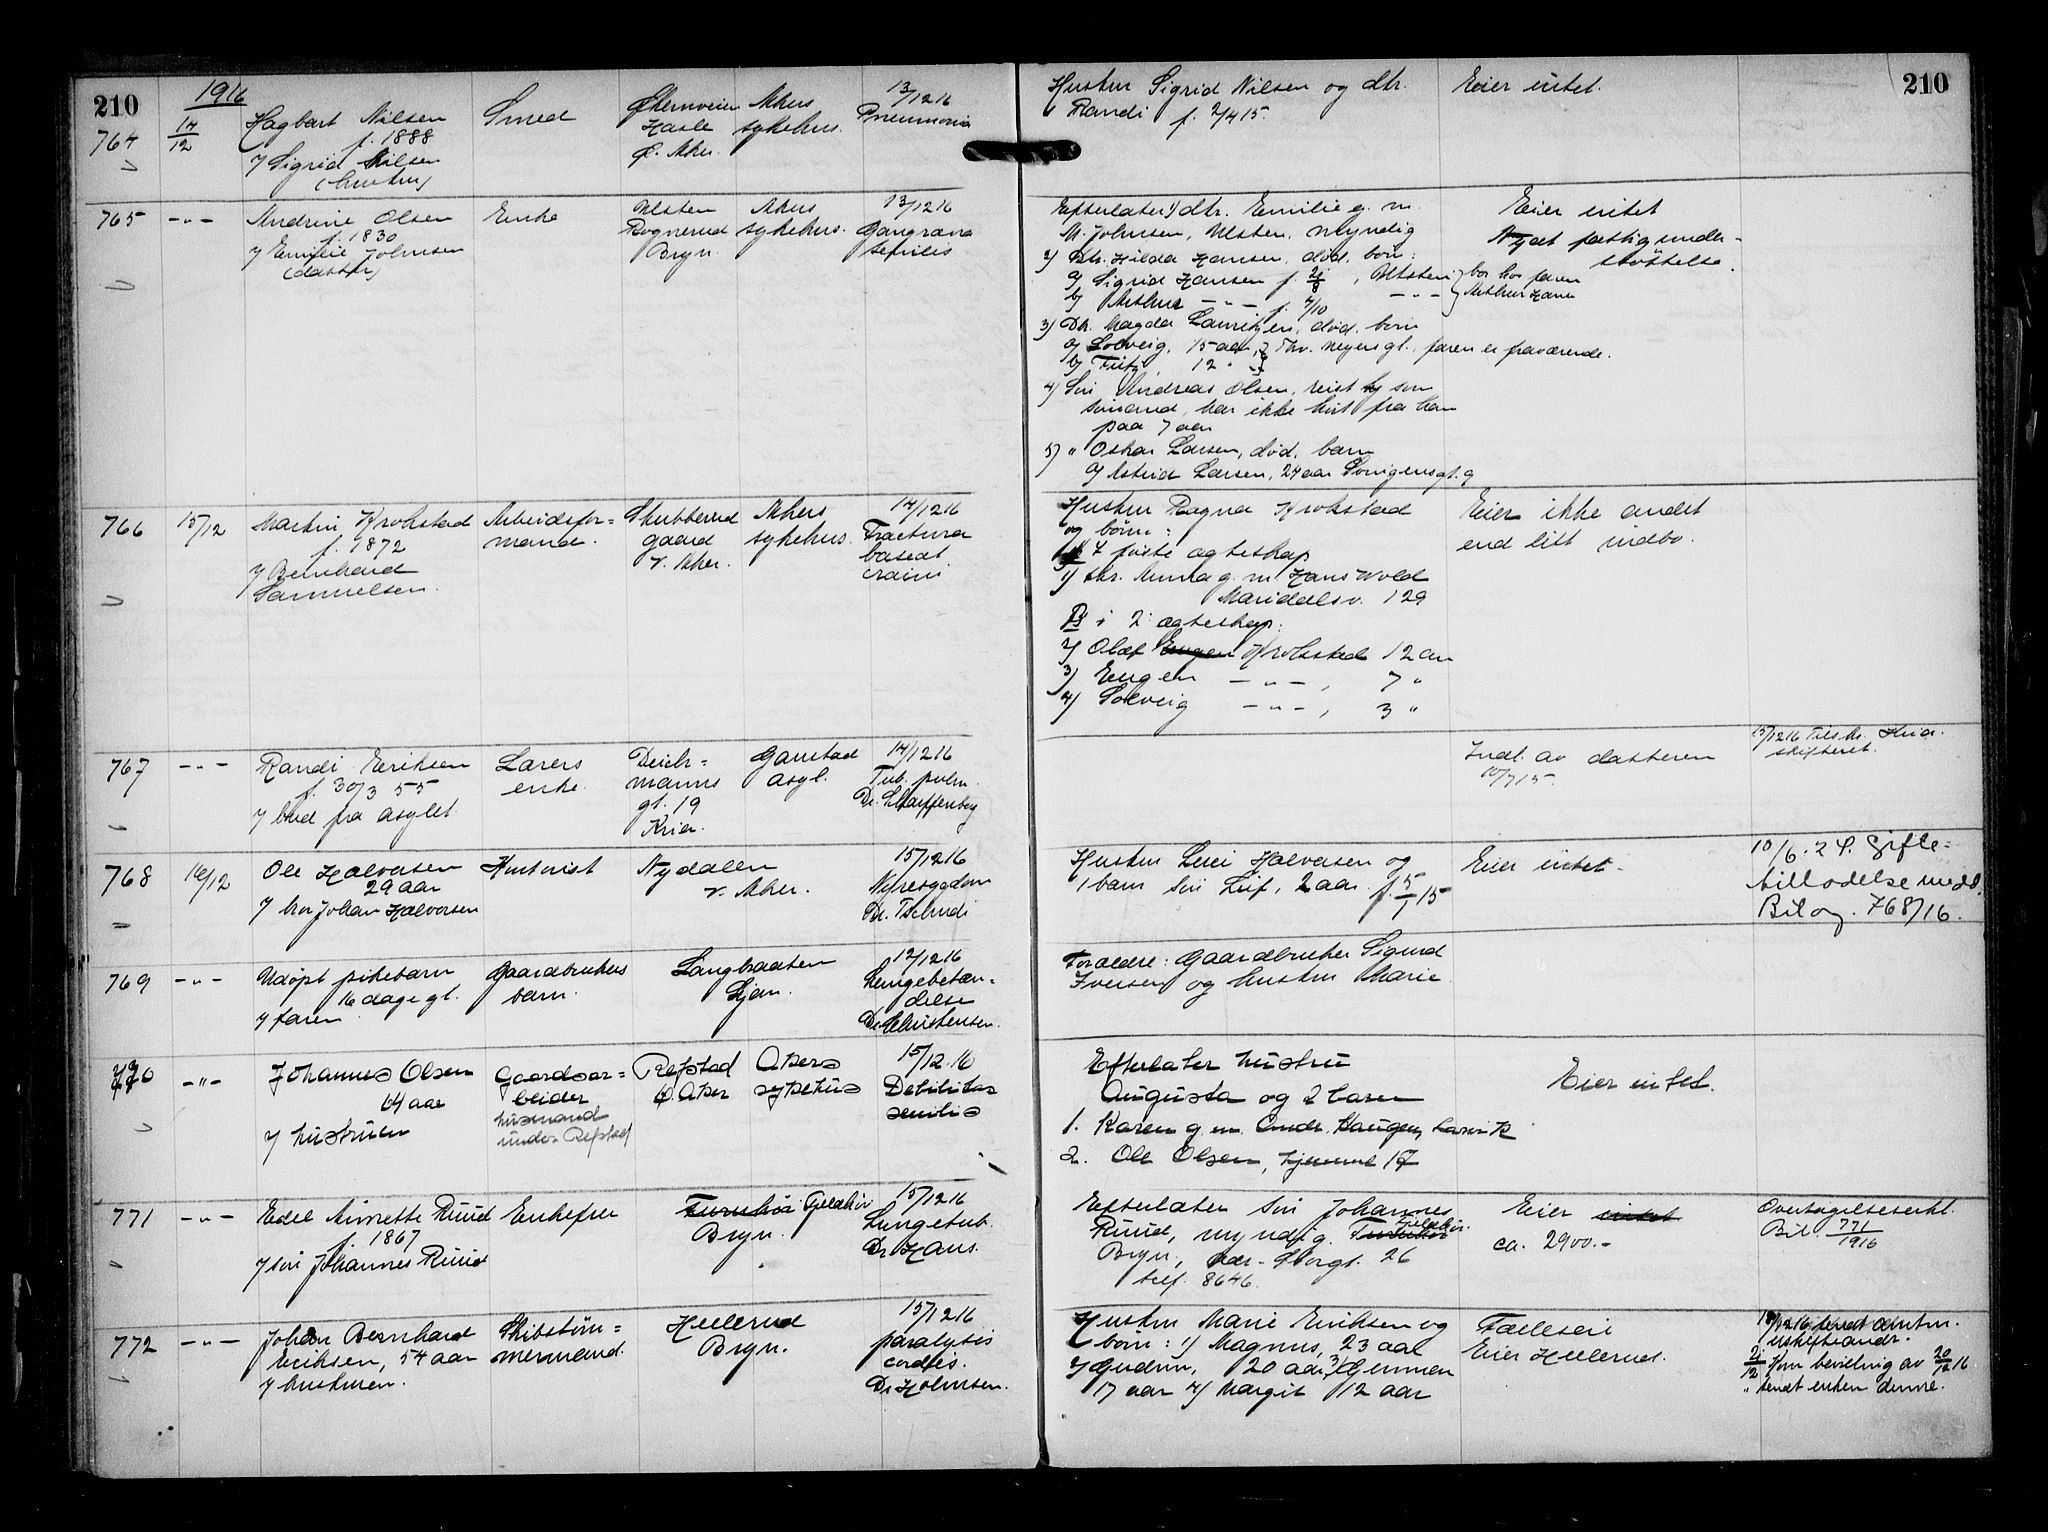 210
1916
764
14/12
Hagbart Nilsen
f. 1888
v/ Sigrid Nilsen
(hustru)
Smed
Økernveien
Hasle
Ø. Aker.
Akers
sykehus.
13/12 16
Pneumonia
Hustru Sigrid Nilsen og dtr.
Randi f. 2/4 15.
Eier intet.
210
765
- " -
Andrine Olsen
f. 1830
v/ Emilie Johnsen
(datter)
Enke
Ulsten
Rognerud
Bryn.
Akers
sykehus.
13/12 16
Gangræna
senilis
Efterlater 1) dtr. Emilie g. m.
M. Johnsen, Ulsten, myndig
2) Dtr. Hilda Hansen, død. børn:
a) Sigrid Hansen f. 2/8, Ulsten } bor hos faren
b) Arthur - " - f. 4/10 - " - } Arthur Hansen
3) Dtr. Magda Lauritzen, død. børn
a) Solveig, 15 aar, } Thv. Meyersgt., faren er fraværende.
b) Fritz, 12 " }
4) Søn Andreas Olsen, reist som
sømand, har ikke hørt fra ham
paa 7 aar
5) " Oskar Larsen, død. barn
a) Astrid Larsen, 24 aar Sorrigensgt. 9
Eier intet
Nydt fattigunder-
støttelse.
766
15/12
Martin Krokstad
f. 1872
v/ Bernhard
Samuelsen.
Arbeidsfor=
mand.
Skubberud
gaard
v. Aker.
Akers
sykehus.
14/12 16
Fractura
baseat
cranii
Hustru Ragna Krokstad
og børn:
I første ægteskap
1) dtr. Anna g. m. Hans Wold
Maridalsv. 129
B) i 2. ægteskap:
2) Olaf Krokstad 12 aar
3) Eugen - " -, 7 "
4) Solveig - " -, 3 "
Eier ikke andet
end litt indbo.
767
- " -
Randi Eriksen
f. 30/3 55
v/ bud fra asylet
Lærers
enke.
Deich=
manns
gt. 19
Kria.
Gaustad
asyl.
14/12 16
Tub. pulm.
Dr. Scharffenberg
Indl. av datteren
10/7 15.
15/12 16 Tilskr. Kria.
skifteret.
768
16/12
Ole Halvorsen
29 aar
v/ bror Johan Halvorsen
Kontorist
Nydalen
v. Aker.
15/12 16
Nyresygdom
Dr. Tschudi
Hustru Leni Halvorsen og
1 barn søn Leif, 2 aar. f. 5/1 15
Eier intet.
10/6. 24. Gifte=
tilladelse medd.
Bilag. 768/16.
769
- " -
Udøpt pikebarn
16 dage gl.
v/ faren
Gaardbrukers
barn.
Langbraaten
Ljan.
12/12 16
Lungebetæn-
delse
Dr. Christensen.
Forældre: Gaardbruker Sigurd
Iversen og hustru Marie
770
- " -
Johannes Olsen
64 aar
v/ hustruen
Gaardsar=
beider
husmand
under Refstad
Refstad
Ø. Aker
Akers
sykehus
15/12. 16
Debilitas
senilis
Efterlater hustru
Augusta og 2 barn
1. Karen g. m. Andr. Haugen, Larvik
2. Ole Olsen, hjemme 17
Eier intet.
771
- " -
Edel Annette Ruud
f. 1867
v/ søn Johannes Ruud
Enkefru
Bryn.
15/12 16
Lungetub.
Dr. Hans.
Efterlater søn Johannes
Ruud, myndig.
Bryn, adr. Storgt. 26
telf. 8646.
Eier intet
ca. 2900.-
Overtagelseserkl.
Bil. 771/1916
772
- " -
Johan Bernhard
Eriksen, 54 aar
v/ hustruen.
Skibstøm=
mermand.
Hellerud
Bryn.
15/12 16
paralysis
cordis.
Dr. Holmsen.
Hustru Marie Eriksen og
børn: 1) Magnus, 23 aar
2) Gudrun, 20 aar, 3) Gunnar
17 aar 4) Margit 12 aar
Fælleseie
Eier Hellerud.
18/12 16 sendt amtm.
uskifteandr.
21/12 Kom bevilling av 20/12 16
" sendt enken denne.